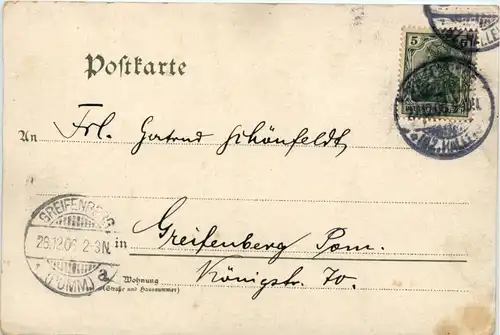 5
Postkarte
An Frl. Gertrud Schönfeldt,
GREIFENBERG
26.12.06. 2-3N.
a
(POMM.)
in Greifenberg Pom.
Wohnung
(Straße und Hausnummer)
Königstr. 70.